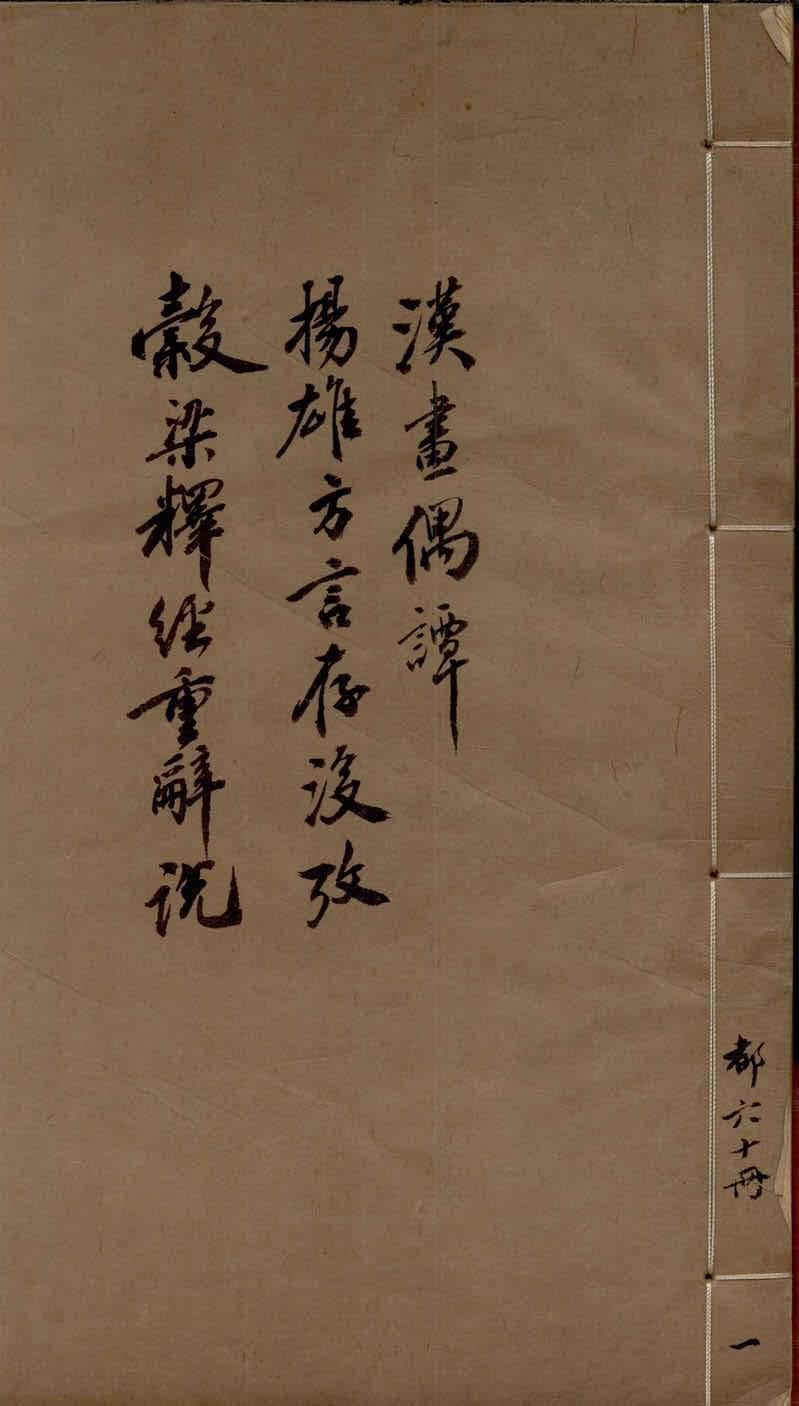 漢畫偶譚
揚雄方言存沒攷
穀梁釋經重辭說
都六十冊
一